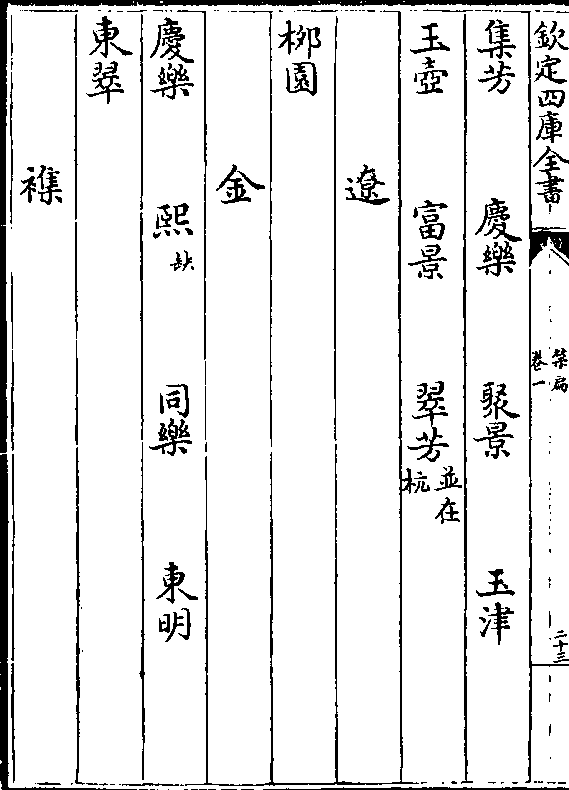 欽定四庫全書
禁扁
卷一
二十三
集芳 慶樂 聚景 玉津
玉壺 富景 翠芳並在杭
遼
柳園
金
慶樂 熙缺 同樂 東明
東翠
襍